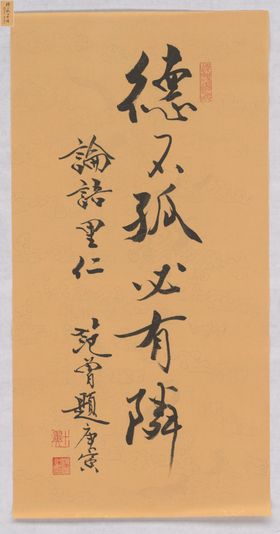 德不孤必有隣
論語里仁
范曾題庚寅